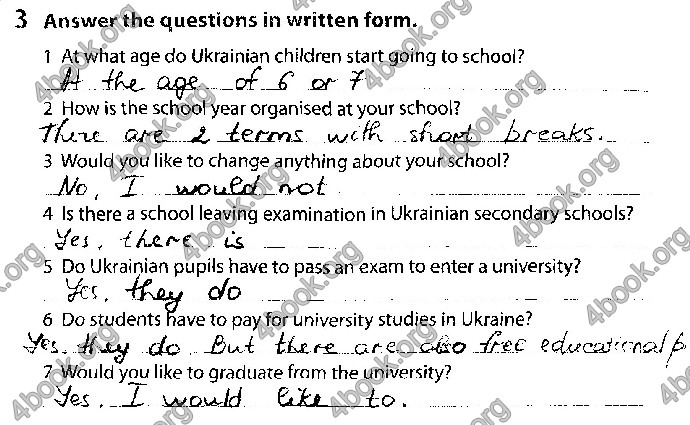 3 Answer the questions in written form.
1 At what age do Ukrainian children start going to school?
At the age of 6 or 7
2 How is the school year organised at your school?
There are 2 terms with short breaks.
3 Would you like to change anything about your school?
No, I would not
4 Is there a school leaving examination in Ukrainian secondary schools?
Yes, there is
5 Do Ukrainian pupils have to pass an exam to enter a university?
Yes, they do
6 Do students have to pay for university studies in Ukraine?
Yes, they do. But there are also free educational p
7 Would you like to graduate from the university?
Yes, I would like to.
4book.org